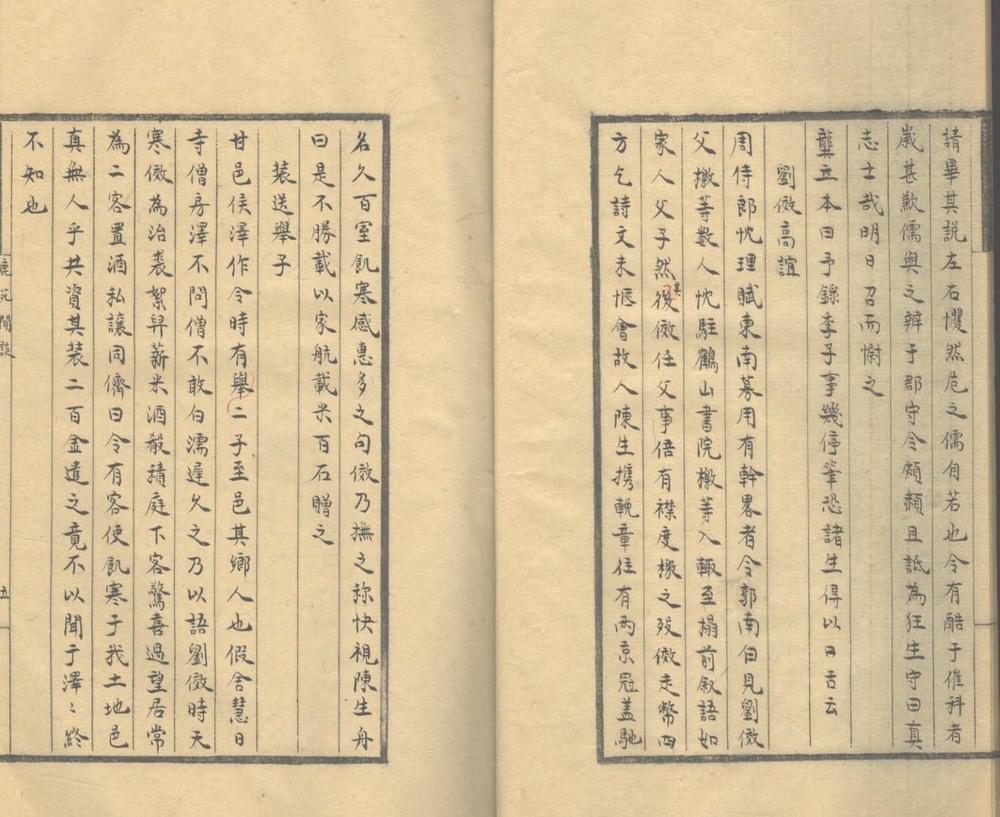 請畢其説左右懼然危之儒自若也令有酷于催科者
嵗甚歉儒與之辨于郡守令頰赬且詆為狂生守曰真
志士哉明日召而慰之
龔立本曰予錄李子事幾停筆恐諸生得以口舌云
劉儆高誼
周侍郎忱理賦東南募用有幹畧者令郭南白見劉儆
父檄等數人忱駐鶴山書院檄等入輒至榻前叙語如
家人父子然後儆任父事倍有襟度檄之歿儆走幣四
其
方乞詩文未愜會故人陳生攜輓章往有兩京冠盖馳
名久百室飢寒感惠多之句儆乃撫之称快視陳生舟
曰是不勝載以家航載米百石贈之
裝送舉子
甘邑侯澤作令時有舉二子至邑其鄉人也假舍慧日
寺僧房澤不問僧不敢白濡遲久之乃以語劉儆時天
寒儆為治裘絮舁薪米酒殽積庭下客驚喜過望居常
為二客置酒私讓同儕曰令有客使飢寒于我土地邑
真無人乎共資其裝二百金遣之竟不以聞于澤〻終
不知也
鹿苑閒談
五